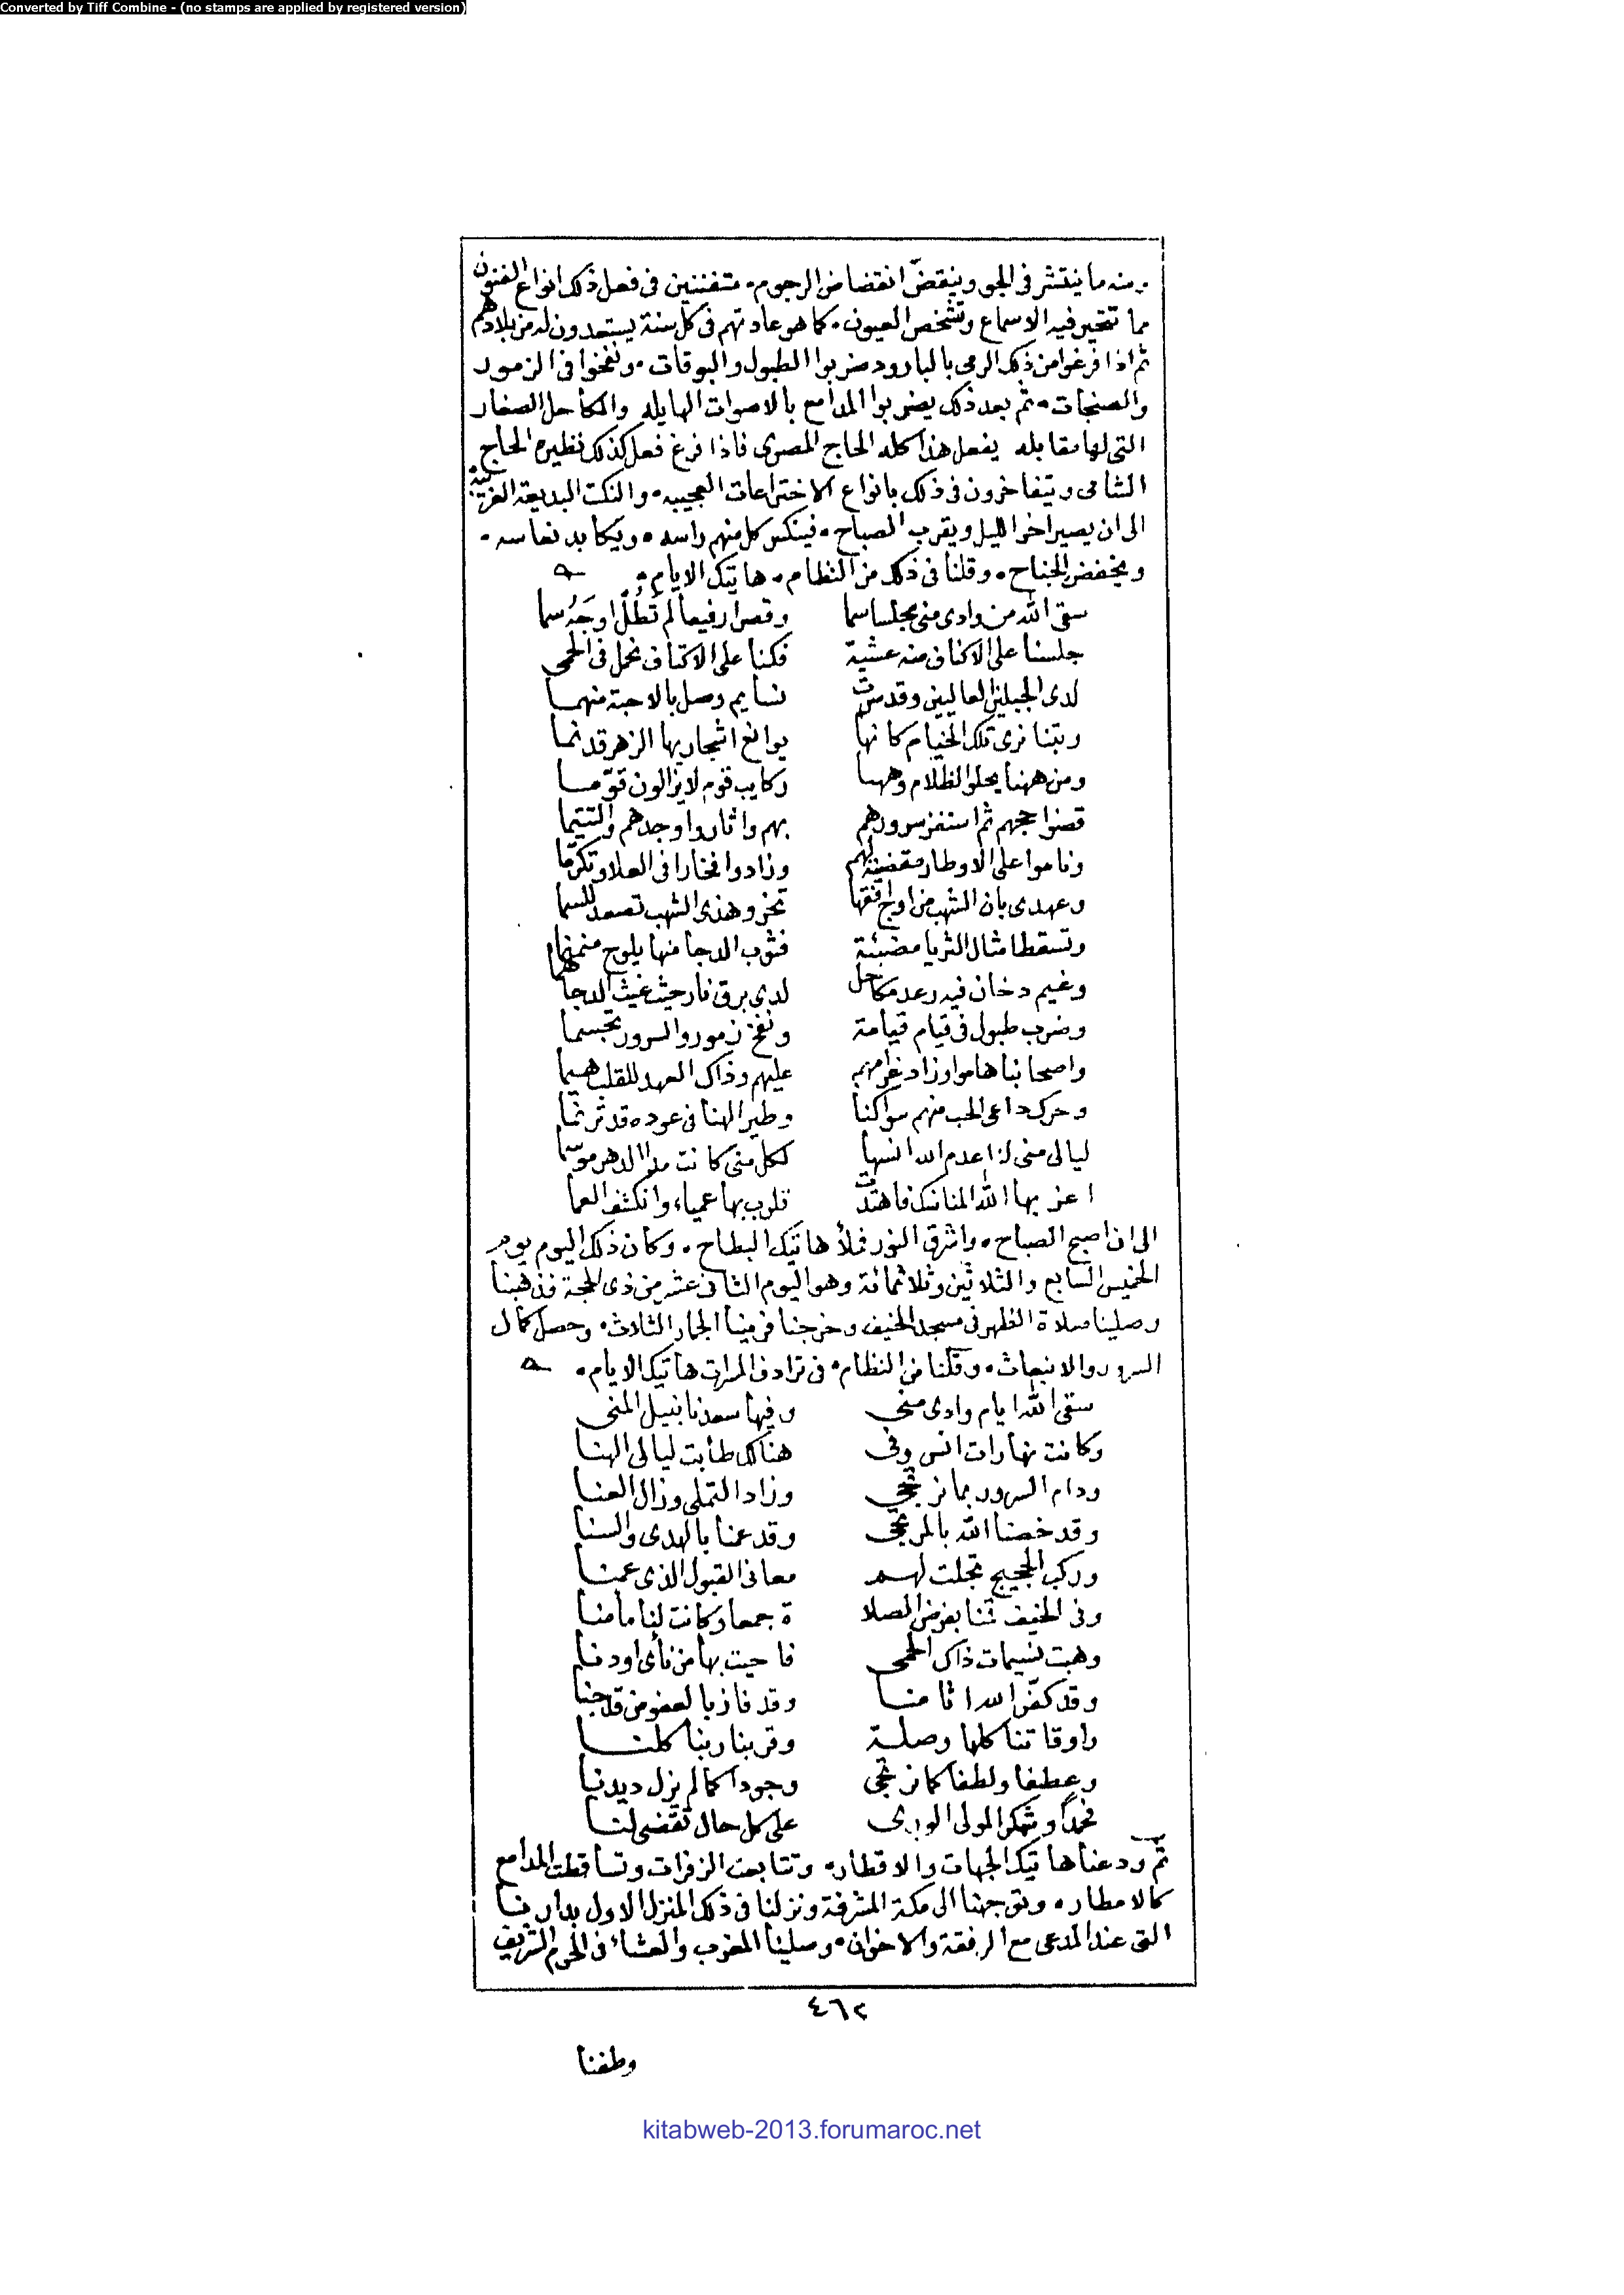 Converted by Tiff Combine - (no stamps are applied by registered version)
ومنه ما ينتشر فى الجو وينقضّ انقضاض الرجوم، متفننين فى فعل ذلك انواع الفنون
مما تتحير فيه الاسماع وتشخص العيون، كما هو عادتهم فى كل سنة يستعدون له من بلادهم
ثم اذا فرغوا من ذلك الرمى بالبارود ضربوا الطبول والبوقات، ونفخوا فى الزمور
والصنجات، ثم بعد ذلك يضربوا المدامع بالاصوات الهايله والمكاحل الصغار
التى لها مقابله يفعل هذا كله الحاج المصرى فاذا فرغ فعل كذلك نظيره الحاج
الشامى ويتفاخرون فى ذلك بانواع الاختراعات العجيبه، والنكت البديعة الغريبة
الى ان يصير اخر الليل ويقرب الصباح، فينكس كل منهم راسه، ويكابد نعاسه،
ويخفض الجناح، وقلنا فى ذلك من النظام، هاتيك الايام،
سقى الله من وادى منى مجلسا سما وقصرا رفيعا لم تطل اوجه سما
جلسنا على الاكناف منه عشية فكنا على الاكتاف نحمل فى الحمى
لدى الجبلين العاليين وقد سرت نسايم وصل بالاحبة منهما
وبتنا نرى تلك الخيام كانها يوانع اشجار بها الزهر قد نما
ومن ههنا يحلو الظلام وههنا ركايب قوم لا يزالون قوّما
قضوا حجهم ثم استفز سرورهم بهم واثاروا وجدهم والتتيما
وناموا على الاوطار مقضية لهم وزادوا فخارا فى العلا وتكرّما
وعهدى بان الشهب من اوج افقها تخر وهذى الشهب تصعد للسما
وتسقط امثال الثريا مضيئة فثوب الدجا منها يلوح منمنما
وغيم دخان فيه رعد مكاحل لدى برق نار حيث غيث الدجا هما
وضرب طبول فى قيام قيامة ونفخ زمور والسرور تجسما
واصحابنا هاموا وزاد غرامهم عليهم وذاك العهد للقلب هيما
وحرك داعى الحب منهم سواكنا وطير الهنا فى عوده قد ترنما
ليالى منى لا اعدم الله انسها لكل منى كانت مدا الدهر موسما
اعز بها الله المناسك فاهتدت قلوب بها عمياء وانكشف العما
الى ان اصبح الصباح، واشرق النور فملأ هاتيك البطاح، وكان ذلك اليوم يوم
الخميس السابع والثلاثين وثلاثمائة وهو اليوم الثانى عشر من ذى الحجة فذهبنا
وصلينا صلاة الظهر فى مسجد الخيف وخرجنا فرمينا الجمار الثلاث، وحصل كمال
السرور والانبعاث، وقلنا من النظام، فى ترادف المسرات هاتيك الايام،
سقى الله ايام وادى منى وفيها سعدنا بنيل المنى
وكانت نهارات انس وفى هناك طابت ليالى الهنا
ودام السرور بما نرتجى وزاد التملى وزال العنا
وقد خصنا الله بالمرتجى وقد عمنا بالهدى والسنا
وركب الحجيج تجلت لهم معانى القبول الذى عمنا
وفى الخيف قمنا بفرض الصلا ة جمعا وكانت لنا مأمنا
وهبت نسيمات ذاك الحمى فاحيت بها من نأى او دنا
وقد كفّر الله اثامنا وقد فاز بالعفو من قد جنا
واوقاتنا كلها وصلة وقربنا ربنا كلنا
وعطفا ولطفا كما نرتجى وجودا كما لم يزل ديدنا
فحمدا وشكرا لمولى الورى على كل حال تقضى لنا
ثم ودعنا هاتيك الجهات والاقطار، وتتابعت الزفرات وتساقطت المدامع
كالامطار، وتوجهنا الى مكة المشرفة ونزلنا فى ذلك المنزل الاول بدارنا
التى عند المدعى مع الرفقة والاخوان، وصلينا المغرب والعشاء فى الحرم الشريف
٤٦٢
وطفنا
kitabweb-2013.forumaroc.net